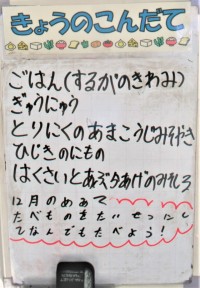 きょうのこんだて
ごはん(するがのきわみ)
ぎゅうにゅう
とりにくのあまこうじみそやき
ひじきのにもの
はくさいとあぶらあげのみそしる
12月のめあて
たべものをたいせつにし
てなんでもたべよう!